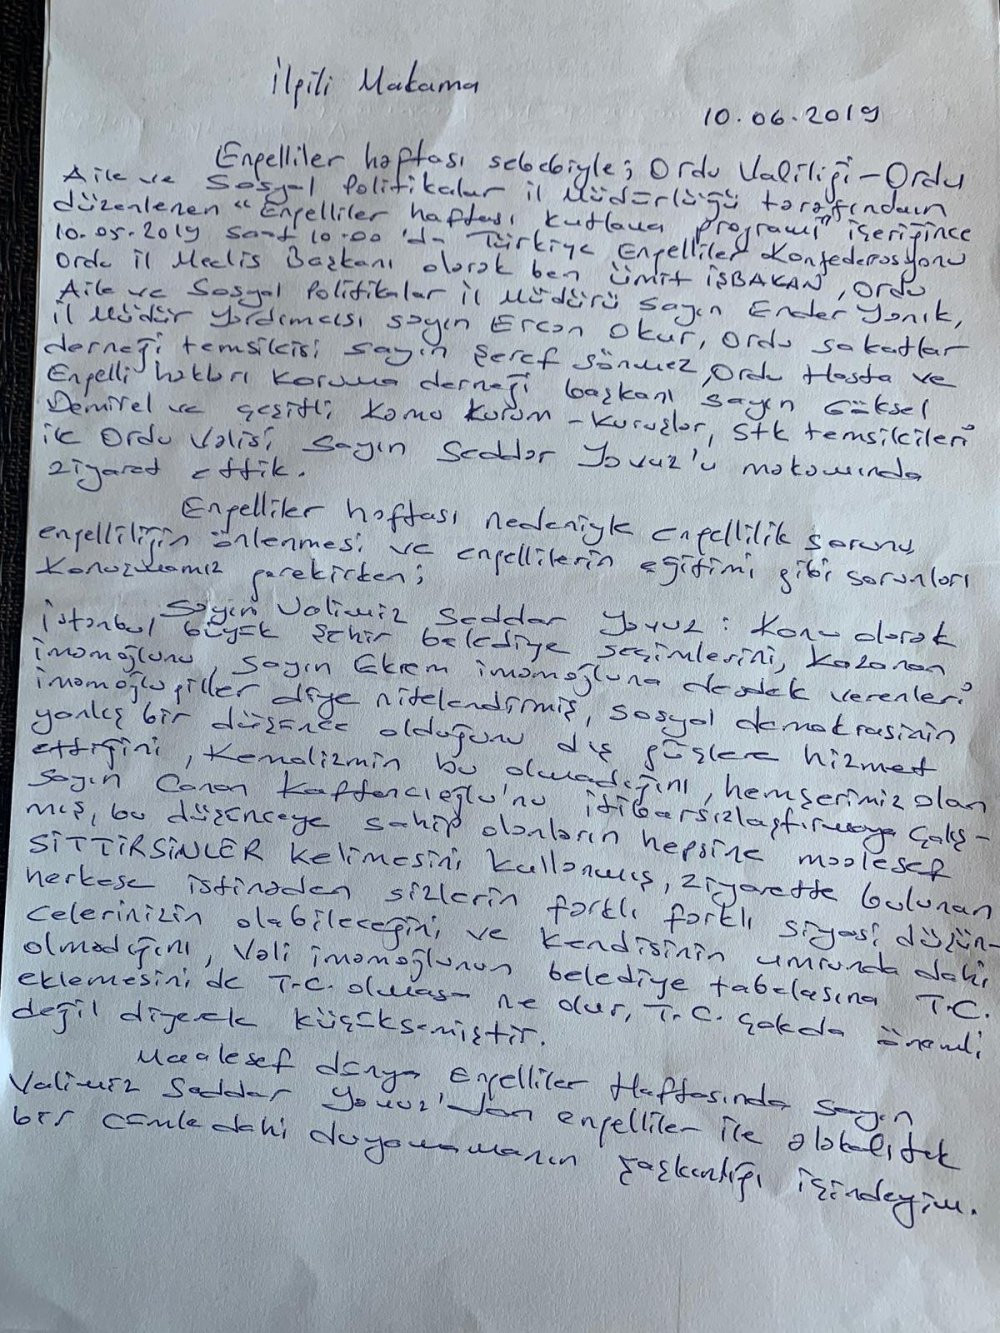 İlgili Makama
10.06.2019
Engelliler haftası sebebiyle; Ordu Valiliği-Ordu
Aile ve Sosyal Politikalar il Müdürlüğü tarafından
düzenlenen "Engelliler haftası kutlama programı" içeriğince
10.05.2019 saat 10.00'da Türkiye Engelliler Konfederasyonu
Ordu il Meclis Başkanı olarak ben ümit İŞBAKAN, Ordu
Aile ve Sosyal Politikalar il Müdürü sayın Ender Yanık,
il Müdür Yardımcısı sayın Ercan Okur, Ordu sakatlar
derneği temsilcisi sayın Şeref Sönmez, Ordu Hasta ve
Engelli hakları koruma derneği başkanı sayın Göksel
Demirel ve çeşitli kamu kurum-kuruluşlar, stk temsilcileri
ile Ordu Valisi sayın Seddar Yavuz'u makamında
ziyaret ettik.
Engelliler haftası nedeniyle engellilik sorunu
engelliliğin önlenmesi ve engellilerin eğitimi gibi sorunları
konuşmamız gerekirken;
Sayın Valimiz Seddar Yavuz: Konu olarak
istanbul büyük şehir belediye seçimlerini, kazanan
imamoğlunu, sayın Ekrem imamoğluna destek verenleri
imamoğlugiller diye nitelendirmiş, sosyal demokrasinin
yanlış bir düşünce olduğunu dış güçlere hizmet
ettiğini, Kemalizmin bu olmadığını, hemşerimiz olan
sayın Canan Kaftancıoğlu'nu itibarsızlaştırmaya çalış-
mış, bu düşünceye sahip olanların hepsine maalesef
SİTTİRSİNLER kelimesini kullanmış, ziyarette bulunan
herkese istinaden sizlerin farklı farklı siyasi düşün-
celerinizin olabileceğini ve kendisinin umrunda dahi
olmadığını, Vali imamoğlunun belediye tabelasına T.C.
eklemesini de T.C. olmasa ne olur, T.C. çokda önemli
değil diyerek küçüksemiştir.
Maalesef dünya Engelliler Haftasında sayın
Valimiz Seddar Yavuz'dan engelliler ile alakalı tek
bir cümle dahi duyamamanın şaşkınlığı içindeyim.